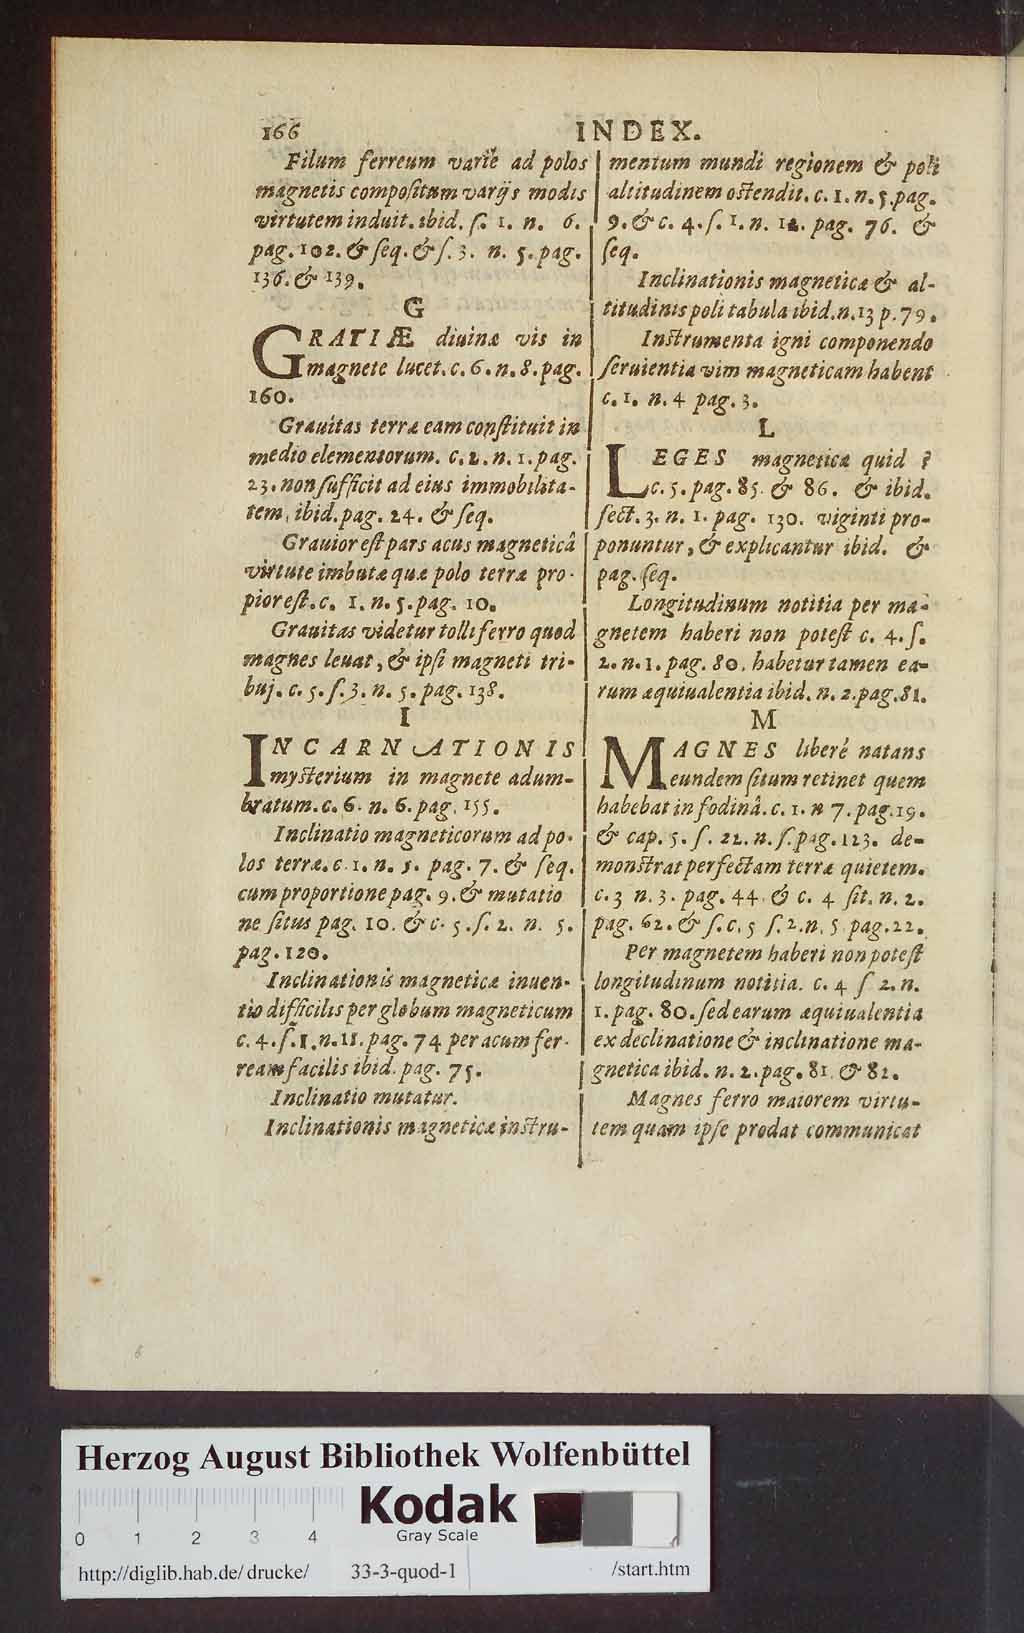 166
INDEX.
Filum ferreum variè ad polos
magnetis compoſitum varijs modis
virtutem induit. ibid. ſ. 1. n. 6.
pag. 102. & ſeq. & ſ. 3. n. 5. pag.
136. & 139.
G
GRATIÆ diuinæ vis in
magnete lucet. c. 6. n. 8. pag.
160.
Grauitas terræ eam conſtituit in
medio elementorum. c. 2. n. 1. pag.
23. non ſufficit ad eius immobilita-
tem, ibid. pag. 24. & ſeq.
Grauior eſt pars acus magneticâ
virtute imbutæ quæ polo terræ pro-
pior eſt. c. 1. n. 5. pag. 10.
Grauitas videtur tolli ferro quod
magnes leuat, & ipſi magneti tri-
buj. c. 5. ſ. 3. n. 5. pag. 138.
I
INCARNATIONIS
myſterium in magnete adum-
bratum. c. 6. n. 6. pag. 155.
Inclinatio magneticorum ad po-
los terræ. c. 1. n. 5. pag. 7. & ſeq.
cum proportione pag. 9. & mutatio
ne ſitus pag. 10. & c. 5. ſ. 2. n. 5.
pag. 120.
Inclinationis magneticæ inuen-
tio difficilis per globum magneticum
c. 4. ſ. 1. n. 11. pag. 74 per acum fer-
ream facilis ibid. pag. 75.
Inclinatio mutatur.
Inclinationis magneticæ inſtru-
mentum mundi regionem & poli
altitudinem oſtendit. c. 1. n. 5. pag.
9. & c. 4. ſ. 1. n. 12. pag. 76. &
ſeq.
Inclinationis magneticæ & al-
titudinis poli tabula ibid. n. 13 p. 79.
Inſtrumenta igni componendo
ſeruientia vim magneticam habent
c. 1. n. 4 pag. 3.
L
LEGES magneticæ quid ?
c. 5. pag. 85. & 86. & ibid.
ſect. 3. n. 1. pag. 130. viginti pro-
ponuntur, & explicantur ibid. &
pag. ſeq.
Longitudinum notitia per ma-
gnetem haberi non poteſt c. 4. ſ.
2. n. 1. pag. 80. habetur tamen ea-
rum æquiualentia ibid. n. 2. pag. 81.
M
MAGNES liberé natans
eundem ſitum retinet quem
habebat in fodinâ. c. 1. n 7. pag. 19.
& cap. 5. ſ. 22. n. ſ. pag. 123. de-
monſtrat perfectam terræ quietem.
c. 3 n. 3. pag. 44. & c. 4 ſit. n. 2.
pag. 62. & ſ. c. 5 ſ. 2. n. 5. pag. 22.
Per magnetem haberi non poteſt
longitudinum notitia. c. 4 ſ 2. n.
1. pag. 80. ſed earum æquiualentia
ex declinatione & inclinatione ma-
gnetica ibid. n. 2. pag. 81. & 82.
Magnes ferro maiorem virtu-
tem quam ipſe prodat communicat
Herzog August Bibliothek Wolfenbüttel
Kodak
Gray Scale
0 1 2 3 4
http://diglib.hab.de/drucke/ 33-3-quod-1 /start.htm